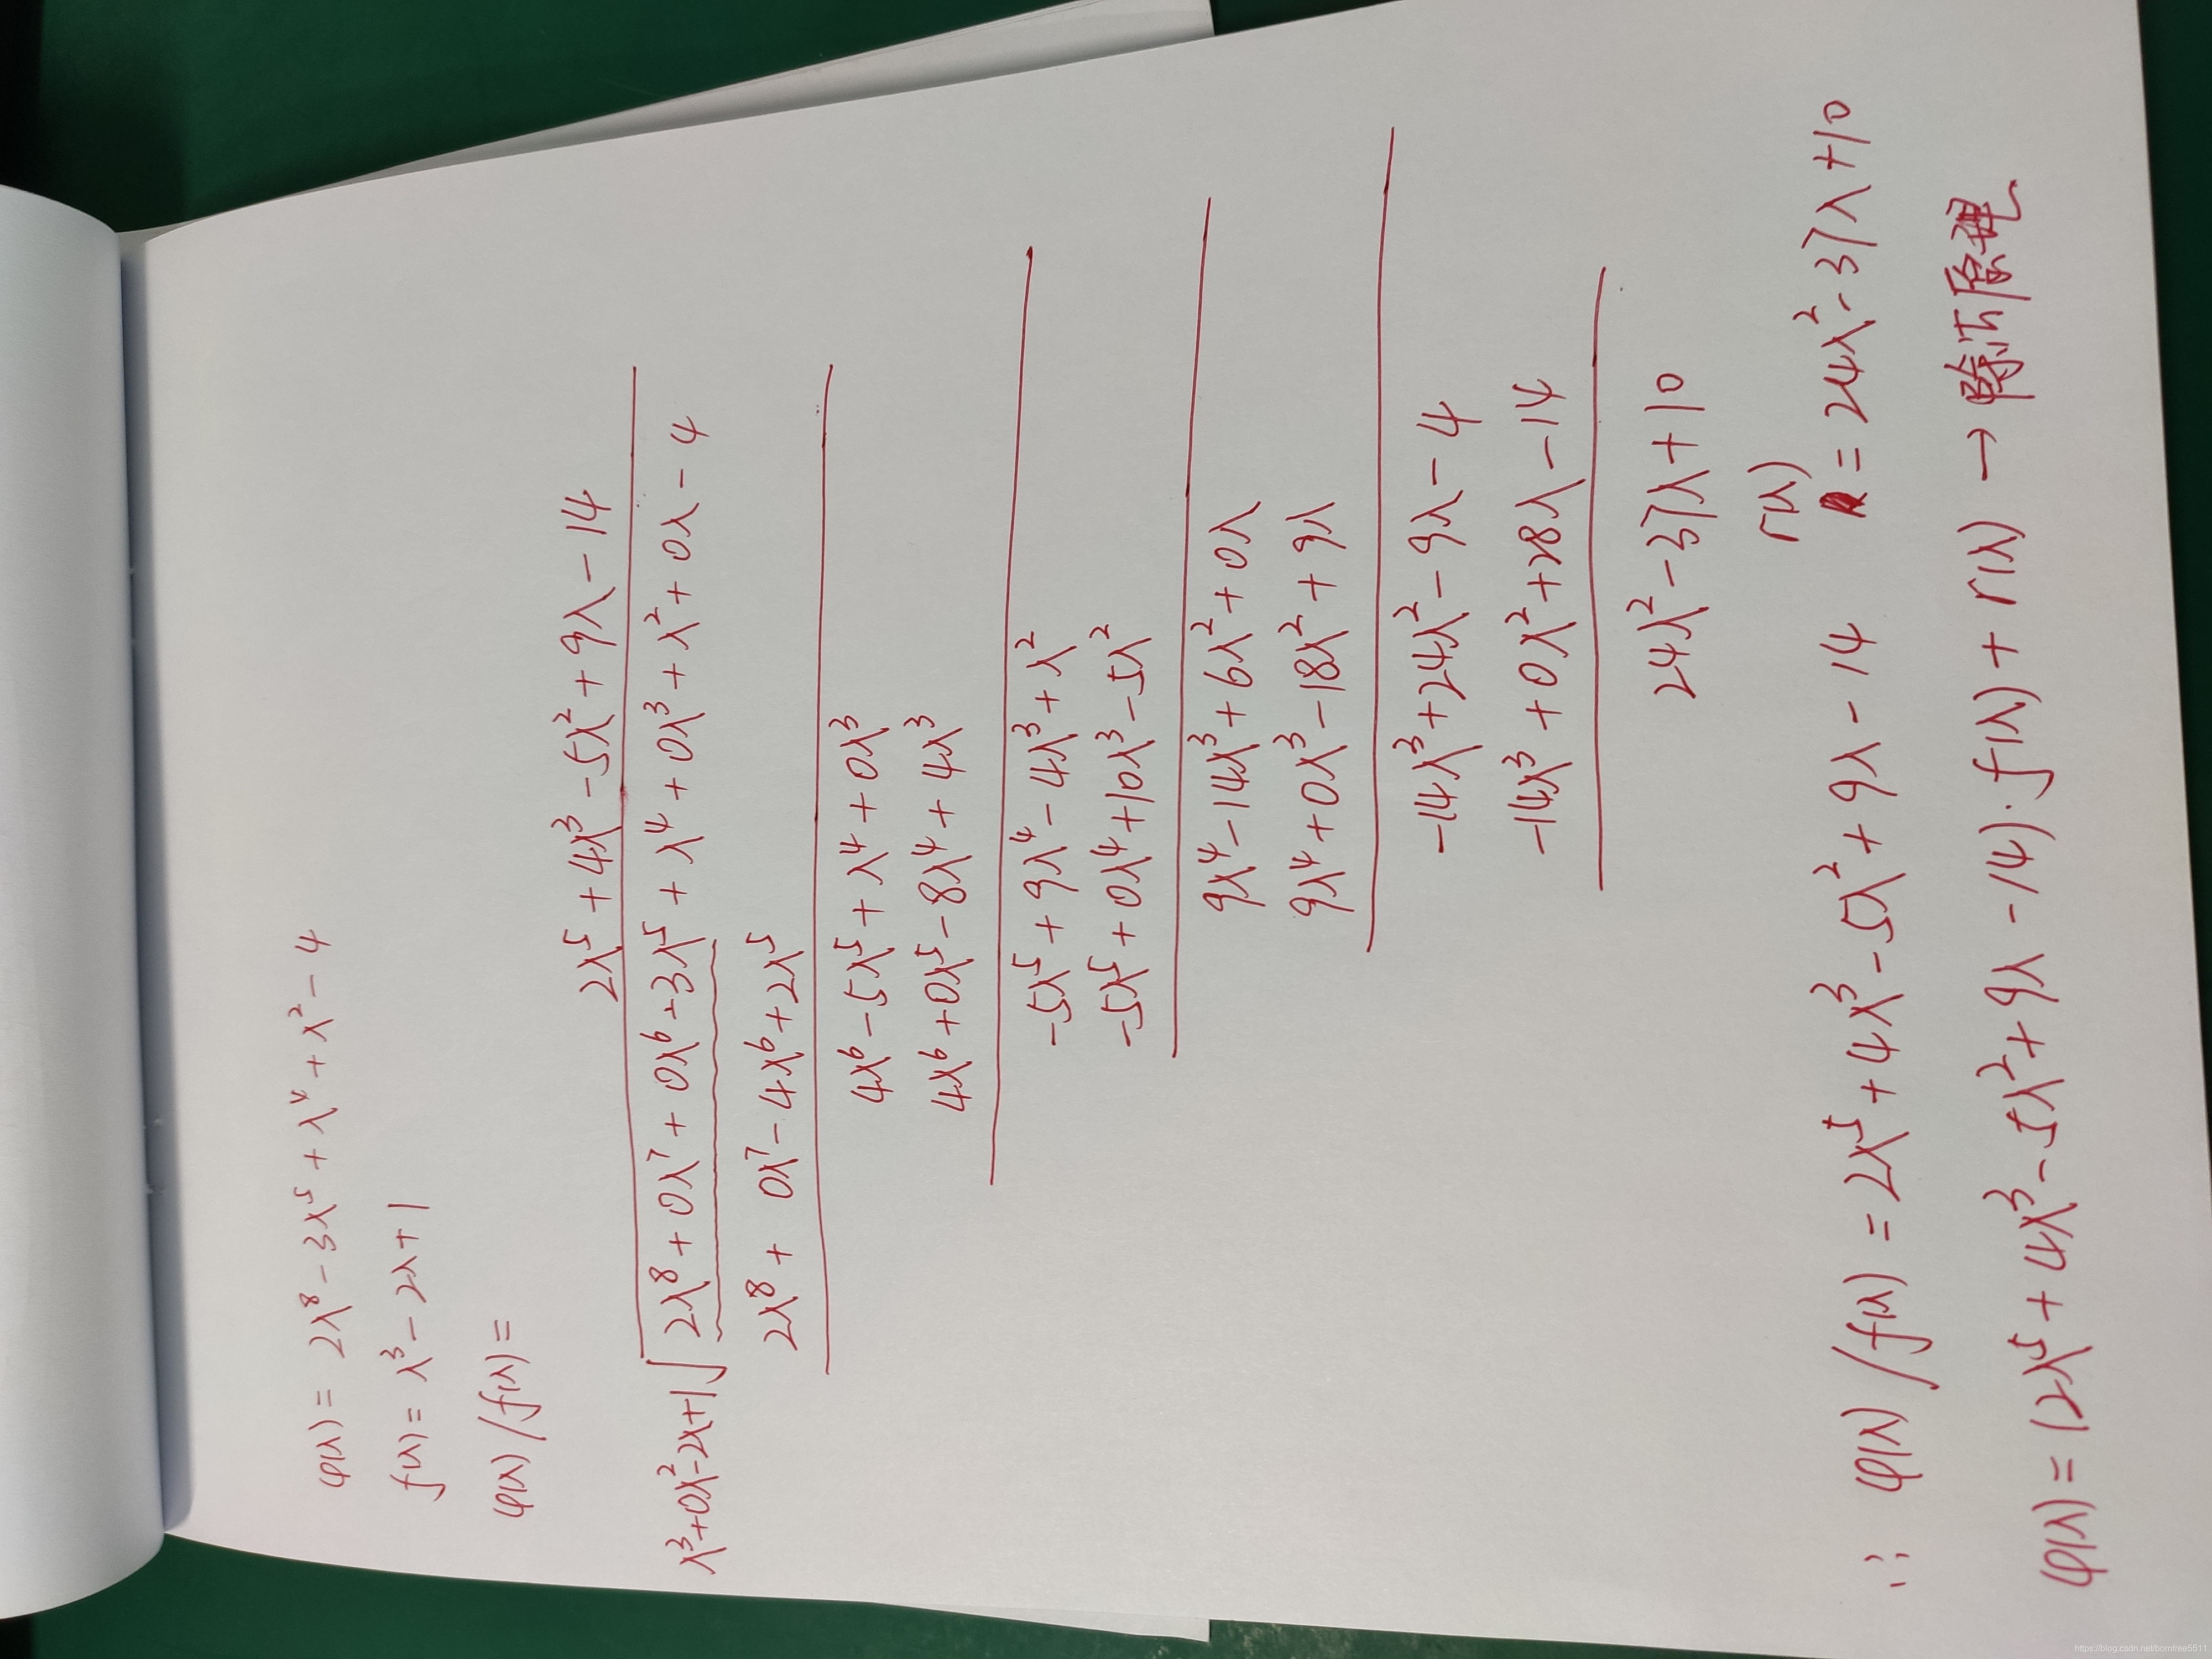 φ(λ) = 2λ⁸ - 3λ⁵ + λ⁴ + λ² - 4
f(λ) = λ³ - 2λ + 1
φ(λ) / f(λ) =
2λ⁵ + 4λ³ - 5λ² + 9λ - 14
λ³+0λ²-2λ+1 √ 2λ⁸ + 0λ⁷ + 0λ⁶ - 3λ⁵ + λ⁴ + 0λ³ + λ² + 0λ - 4
2λ⁸ + 0λ⁷ - 4λ⁶ + 2λ⁵
4λ⁶ - 5λ⁵ + λ⁴ + 0λ³
4λ⁶ + 0λ⁵ - 8λ⁴ + 4λ³
-5λ⁵ + 9λ⁴ - 4λ³ + λ²
-5λ⁵ + 0λ⁴ + 10λ³ - 5λ²
9λ⁴ - 14λ³ + 6λ² + 0λ
9λ⁴ + 0λ³ - 18λ² + 9λ
-14λ³ + 24λ² - 9λ - 4
-14λ³ + 0λ² + 28λ - 14
24λ² - 37λ + 10
∴ φ(λ) / f(λ) = 2λ⁵ + 4λ³ - 5λ² + 9λ - 14 r(λ) = 24λ² - 37λ + 10
φ(λ) = (2λ⁵ + 4λ³ - 5λ² + 9λ - 14)·f(λ) + r(λ) → 除法原理
https://blog.csdn.net/bornfree5511